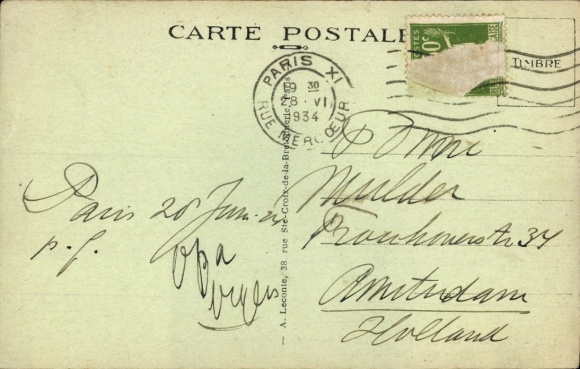 CARTE POSTALE
POSTES
TIMBRE
PARIS XI
19 30
28 VI
1934
RUE MERCŒUR
A. Leconte, 38 rue Ste-Croix-de-la-Bretonnerie, Paris
Mulder
37
Amsterdam
Holland
Paris 28 Juni
p. f.
Opa